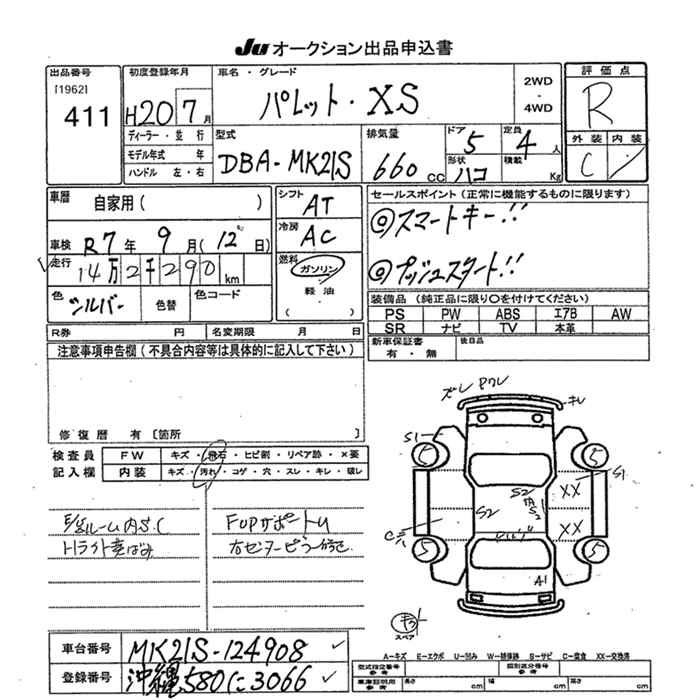 Ju オークション出品申込書
出品番号
[1962]
411
初度登録年月
H20 7月
車名・グレード
パレット・XS
2WD
・
4WD
評価点
R
外装 内装
C
ディーラー・並行
モデル年式 年
ハンドル 左・右
型式
DBA-MK21S
排気量
660 CC
ドア 5
定員 4人
形状 ハコ
積載 Kg
車歴
自家用( )
車検 R7年 9月(12日)
走行
14万2千290km
色 シルバー
色替
色コード
シフト AT
冷房 AC
燃料
ガソリン
軽油
( )
セールスポイント(正常に機能するものに限ります)
◎スマートキー!!
◎プッシュスタート!!
装備品(純正品に限り〇を付けてください)
PS PW ABS エアB AW
SR ナビ TV 本革
新車保証書
有・無
後日品
R券 円
名変期限 月 日
注意事項申告欄(不具合内容等は具体的に記入して下さい)
修復歴 有〔箇所 〕
検査員
記入欄
FW キズ・飛石・ヒビ割・リペア跡・×要
内装 キズ・汚れ・コゲ・穴・スレ・キレ・破レ
Hライト黄ばみ
FUPサポートU
右センターピラー修正
ズレ
キレ
S1
S1
5
5
5
5
XX
XX
S2
S2
A1
スペア
A-キズ E-エクボ U-凹み W-補修跡 S-サビ C-腐食 XX-交換済
車台番号 MK21S-124908
登録番号 沖縄580に3066
型式指定番号
参考
類別区分番号
参考
車庫証明用
参考
長さ cm 幅 cm 高さ cm